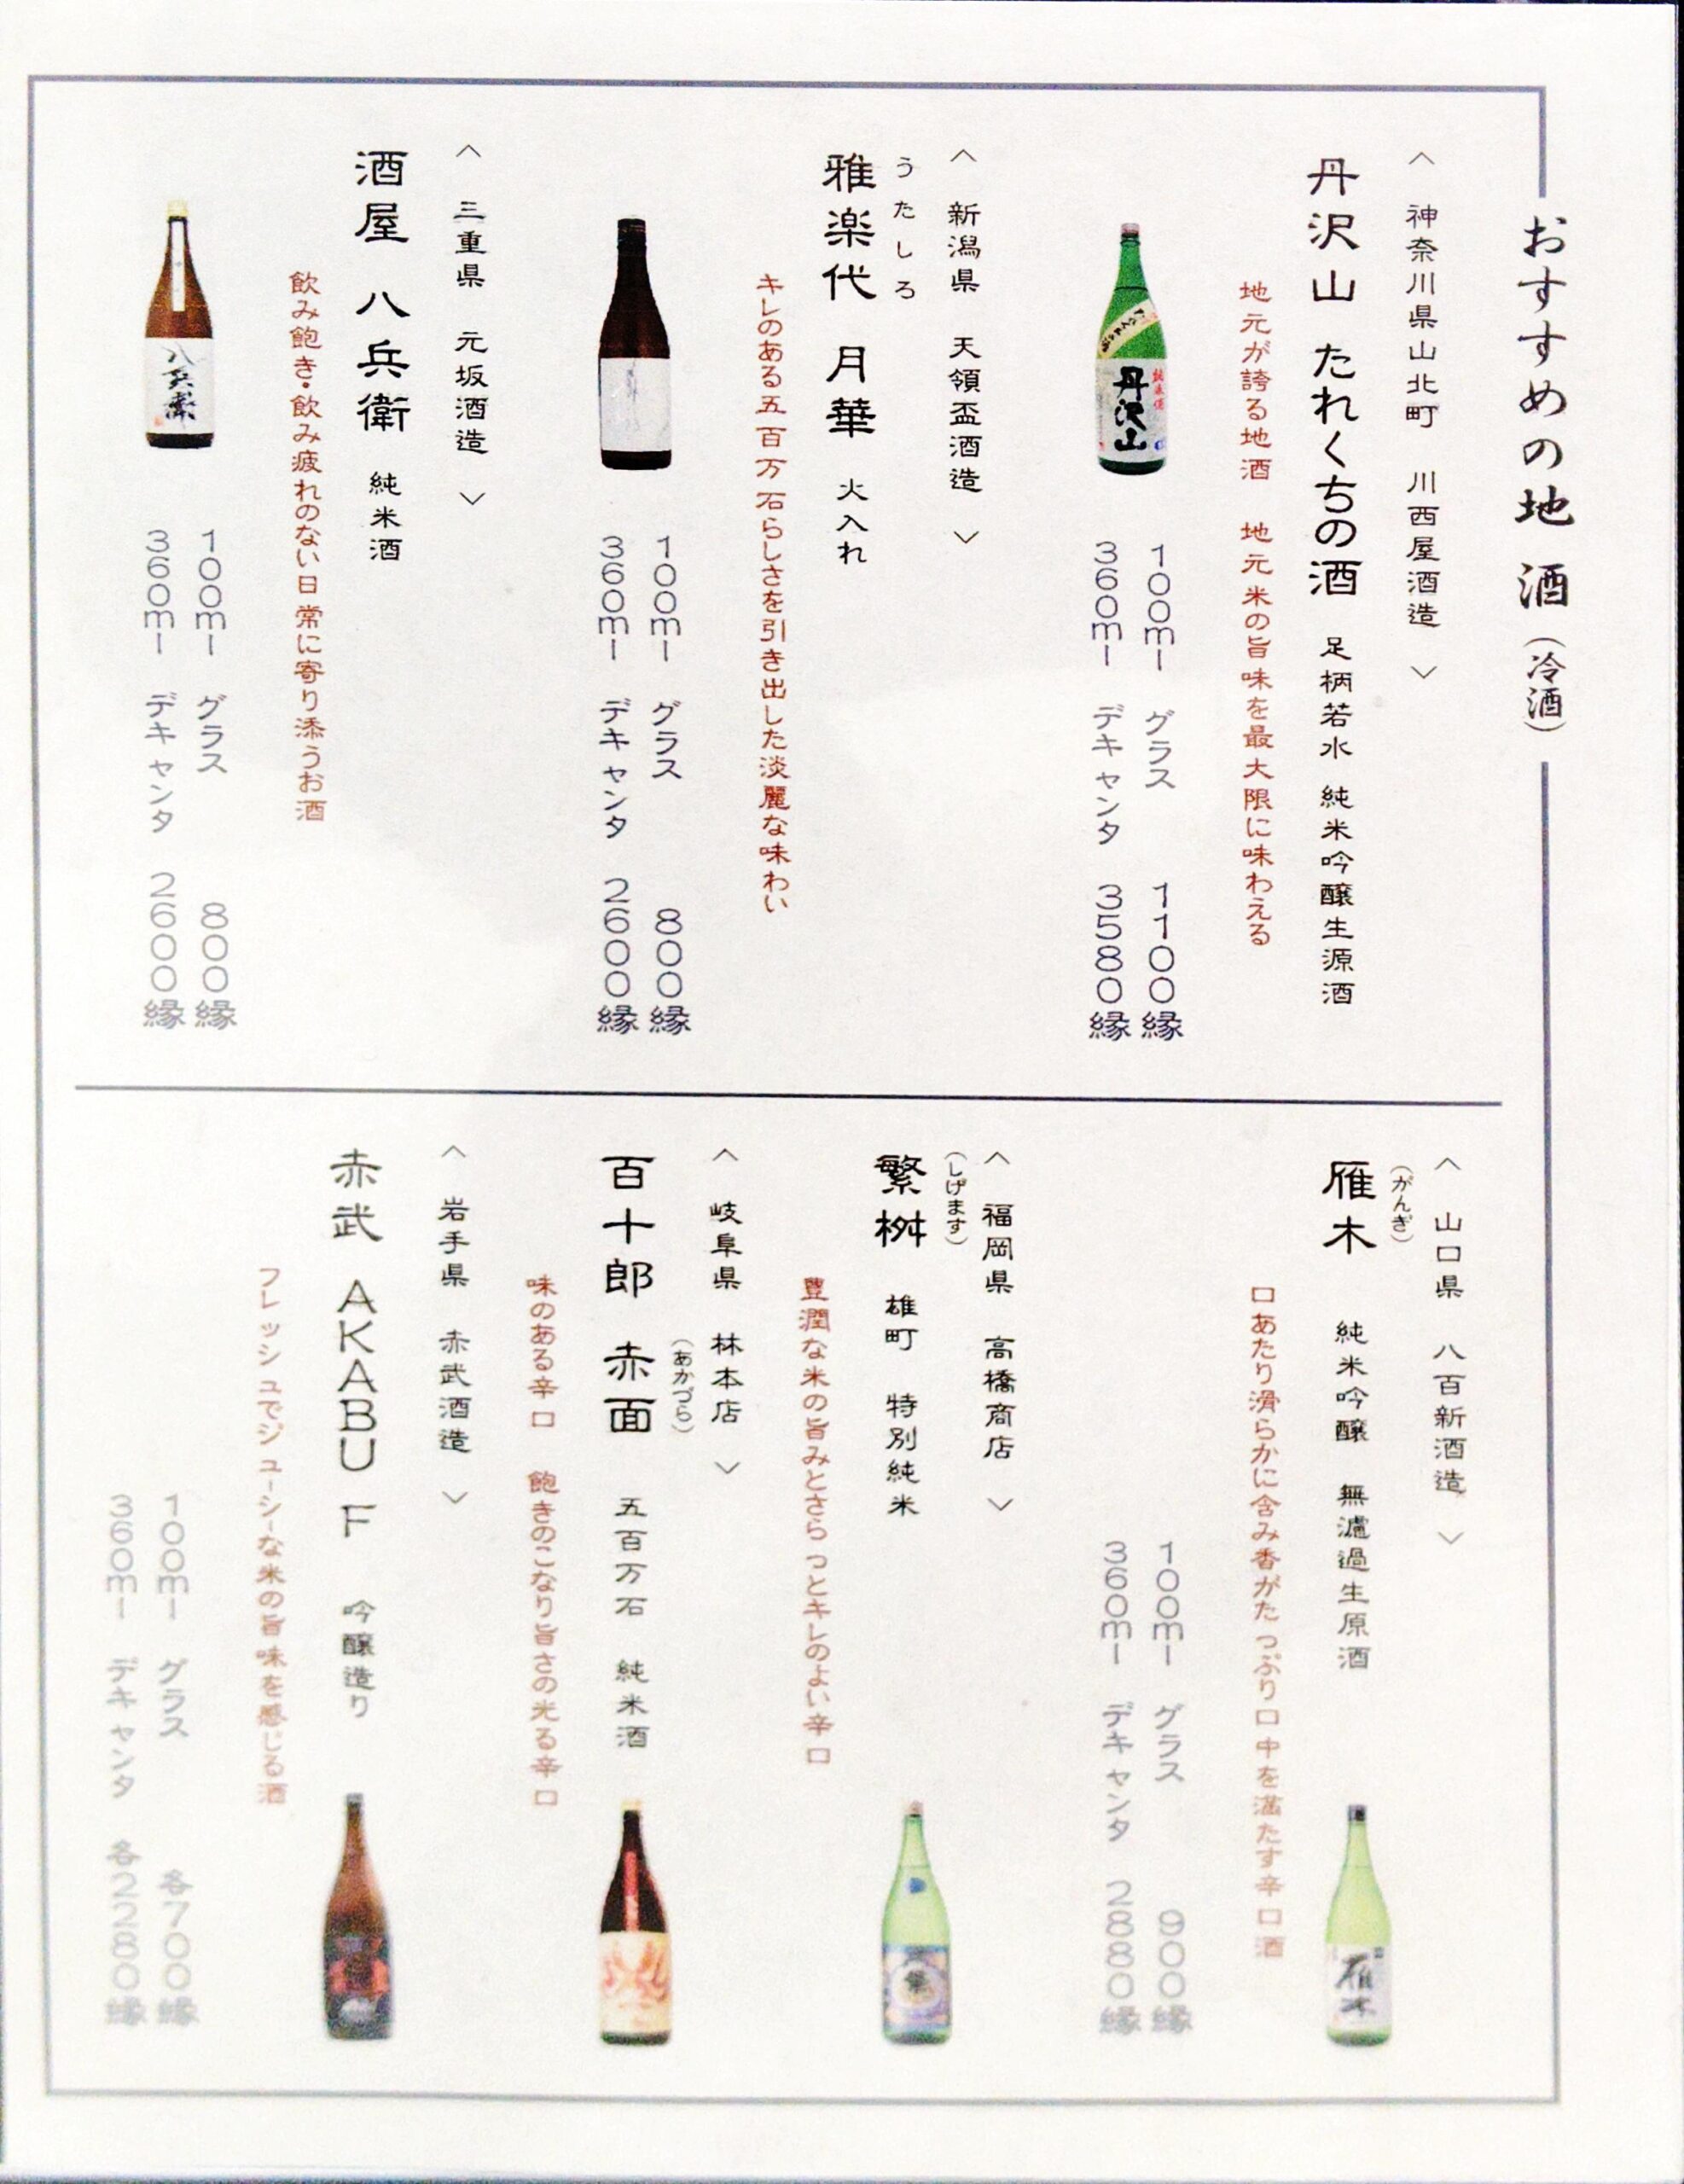 おすすめの地酒（冷酒）
〈 神奈川県山北町 川西屋酒造 〉
丹沢山 たれくちの酒 足柄若水 純米吟醸生源酒
地元が誇る地酒 地元米の旨味を最大限に味わえる
100ml グラス 1100縁
360ml デキャンタ 3580縁
丹沢山
〈 新潟県 天領盃酒造 〉
うたしろ
雅楽代 月華 火入れ
キレのある五百万石らしさを引き出した淡麗な味わい
100ml グラス 800縁
360ml デキャンタ 2600縁
〈 三重県 元坂酒造 〉
酒屋 八兵衛 純米酒
飲み飽き・飲み疲れのない日常に寄り添うお酒
100ml グラス 800縁
360ml デキャンタ 2600縁
八兵衛
〈 山口県 八百新酒造 〉
（がんぎ）
雁木 純米吟醸 無濾過生原酒
口あたり滑らかに含み香がたっぷり口中を満たす辛口酒
100ml グラス 900縁
360ml デキャンタ 2880縁
雁木
〈 福岡県 高橋商店 〉
（しげます）
繁桝 雄町 特別純米
豊潤な米の旨みとさらっとキレのよい辛口
〈 岐阜県 林本店 〉
（あかづら）
百十郎 赤面 五百万石 純米酒
味のある辛口 飽きのこなり旨さの光る辛口
〈 岩手県 赤武酒造 〉
赤武 AKABU F 吟醸造り
フレッシュでジューシーな米の旨味を感じる酒
100ml グラス 各700縁
360ml デキャンタ 各2280縁